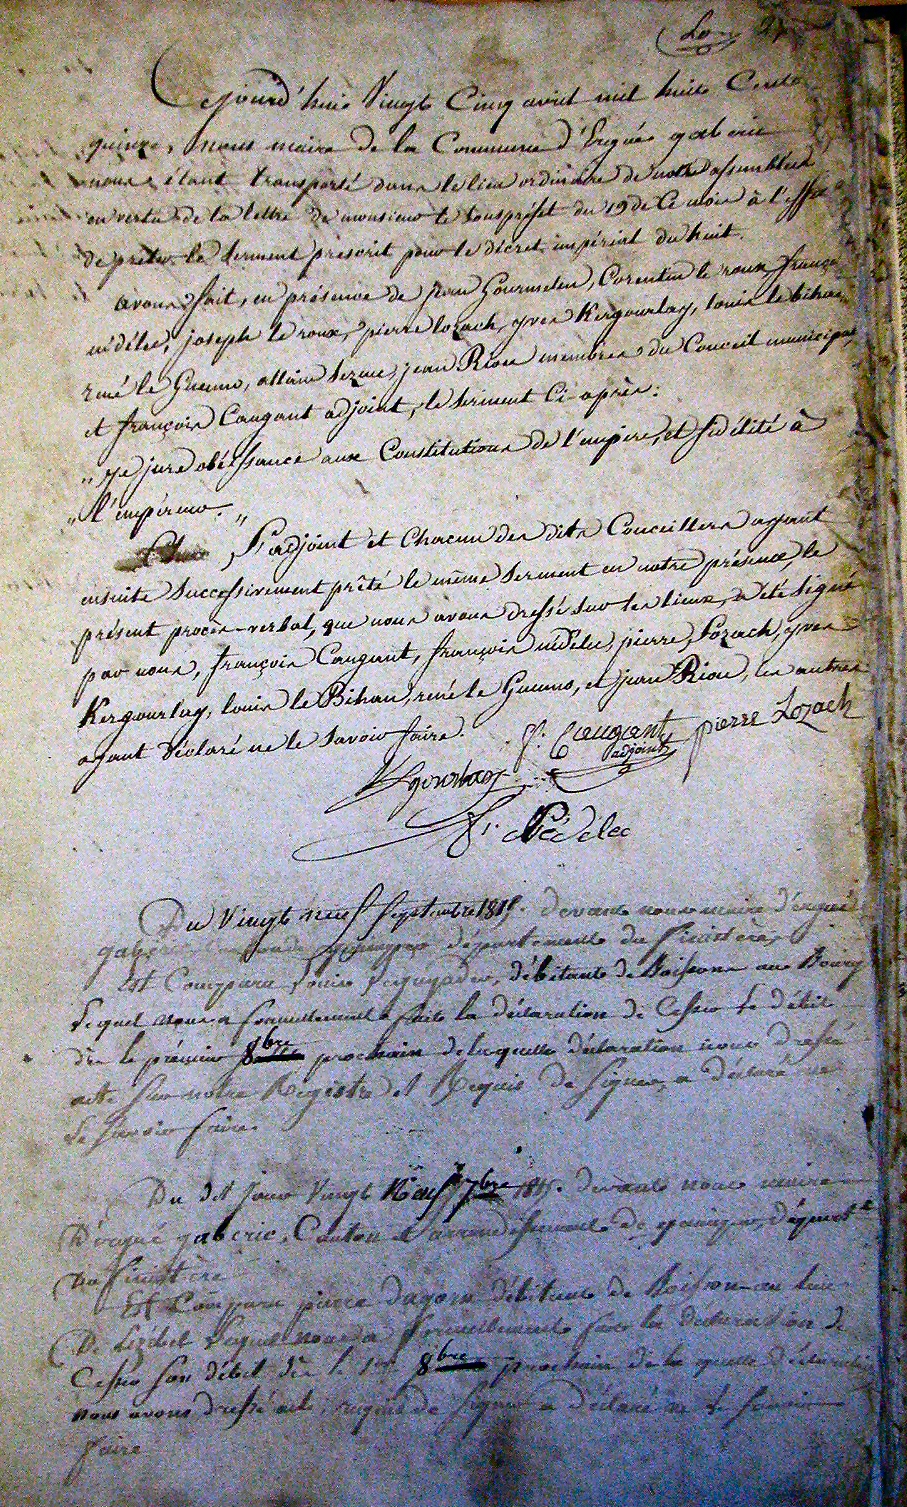 Cejourd'hui Vingt Cinq avril mil huit Cents
quinze, nous maire de la Commune d'Ergué gaberic
nous étant transporté dans le lieu ordinaire de notre assemblée
en vertu de la lettre de monsieur le sous préfet du 19 de Ce mois à l'effet
de prêter le serment prescrit pour le décret impérial du huit.
avons fait, en présence de jean Gourmelen, Corentin le roux, françois
nédélec, joseph le roux, pierre lozach, yves Kergourlay, louis le bihan,
rené le Guenno, allain jean Riou membres du Conceil municipal,
et françois Caugant adjoint, le serment Ci-après:
„ je jure obéissance aux Constitutions de l'empire, et fidélité à
„ l'empéreur. „
L'adjoint et Chacun des dits Conceillers ayant
ensuite successivement prêté le même serment en notre présence, le
présent procès-verbal, que nous avons dressé sur les lieux, a été signé
par nous, françois Caugant, françois nédélec, pierre Lozach, yves
Kergourlay, louis le Bihan, rené le Guenno, et jean Riou, les autres
ayant déclaré ne le savoir faire.
f. Caugant adjoint pierre Lozach
Kgourlay
f. Nédelec
Du Vingt neuf septembre 1815. devant nous maire d'ergué
gaberic quimper département du finistère,
Est Comparu Louis débitant de Boissons au Bourg
Lequel nous a formellement faite la déclaration de Cesser Le débit
dès le prémier 8bre prochain de laquelle déclaration nous dressé
acte sur notre Registre et Requis de signer, a déclaré ne
Le savoir faire.
Du dit jour Vingt Neuf 7bre 1815. devant nous maire
D'ergué gaberic, Canton et arrondissement de quimper, départt
du finistère
Est Comparu pierre débitant de Boisson au lieu
De Lezebel Lequel nous a formellement fait la déclaration de
Cesser son débit dès le 1er 8bre prochain de la quelle déclaration
nous avons dressé acte, requis de signer a déclaré ne le savoir
faire